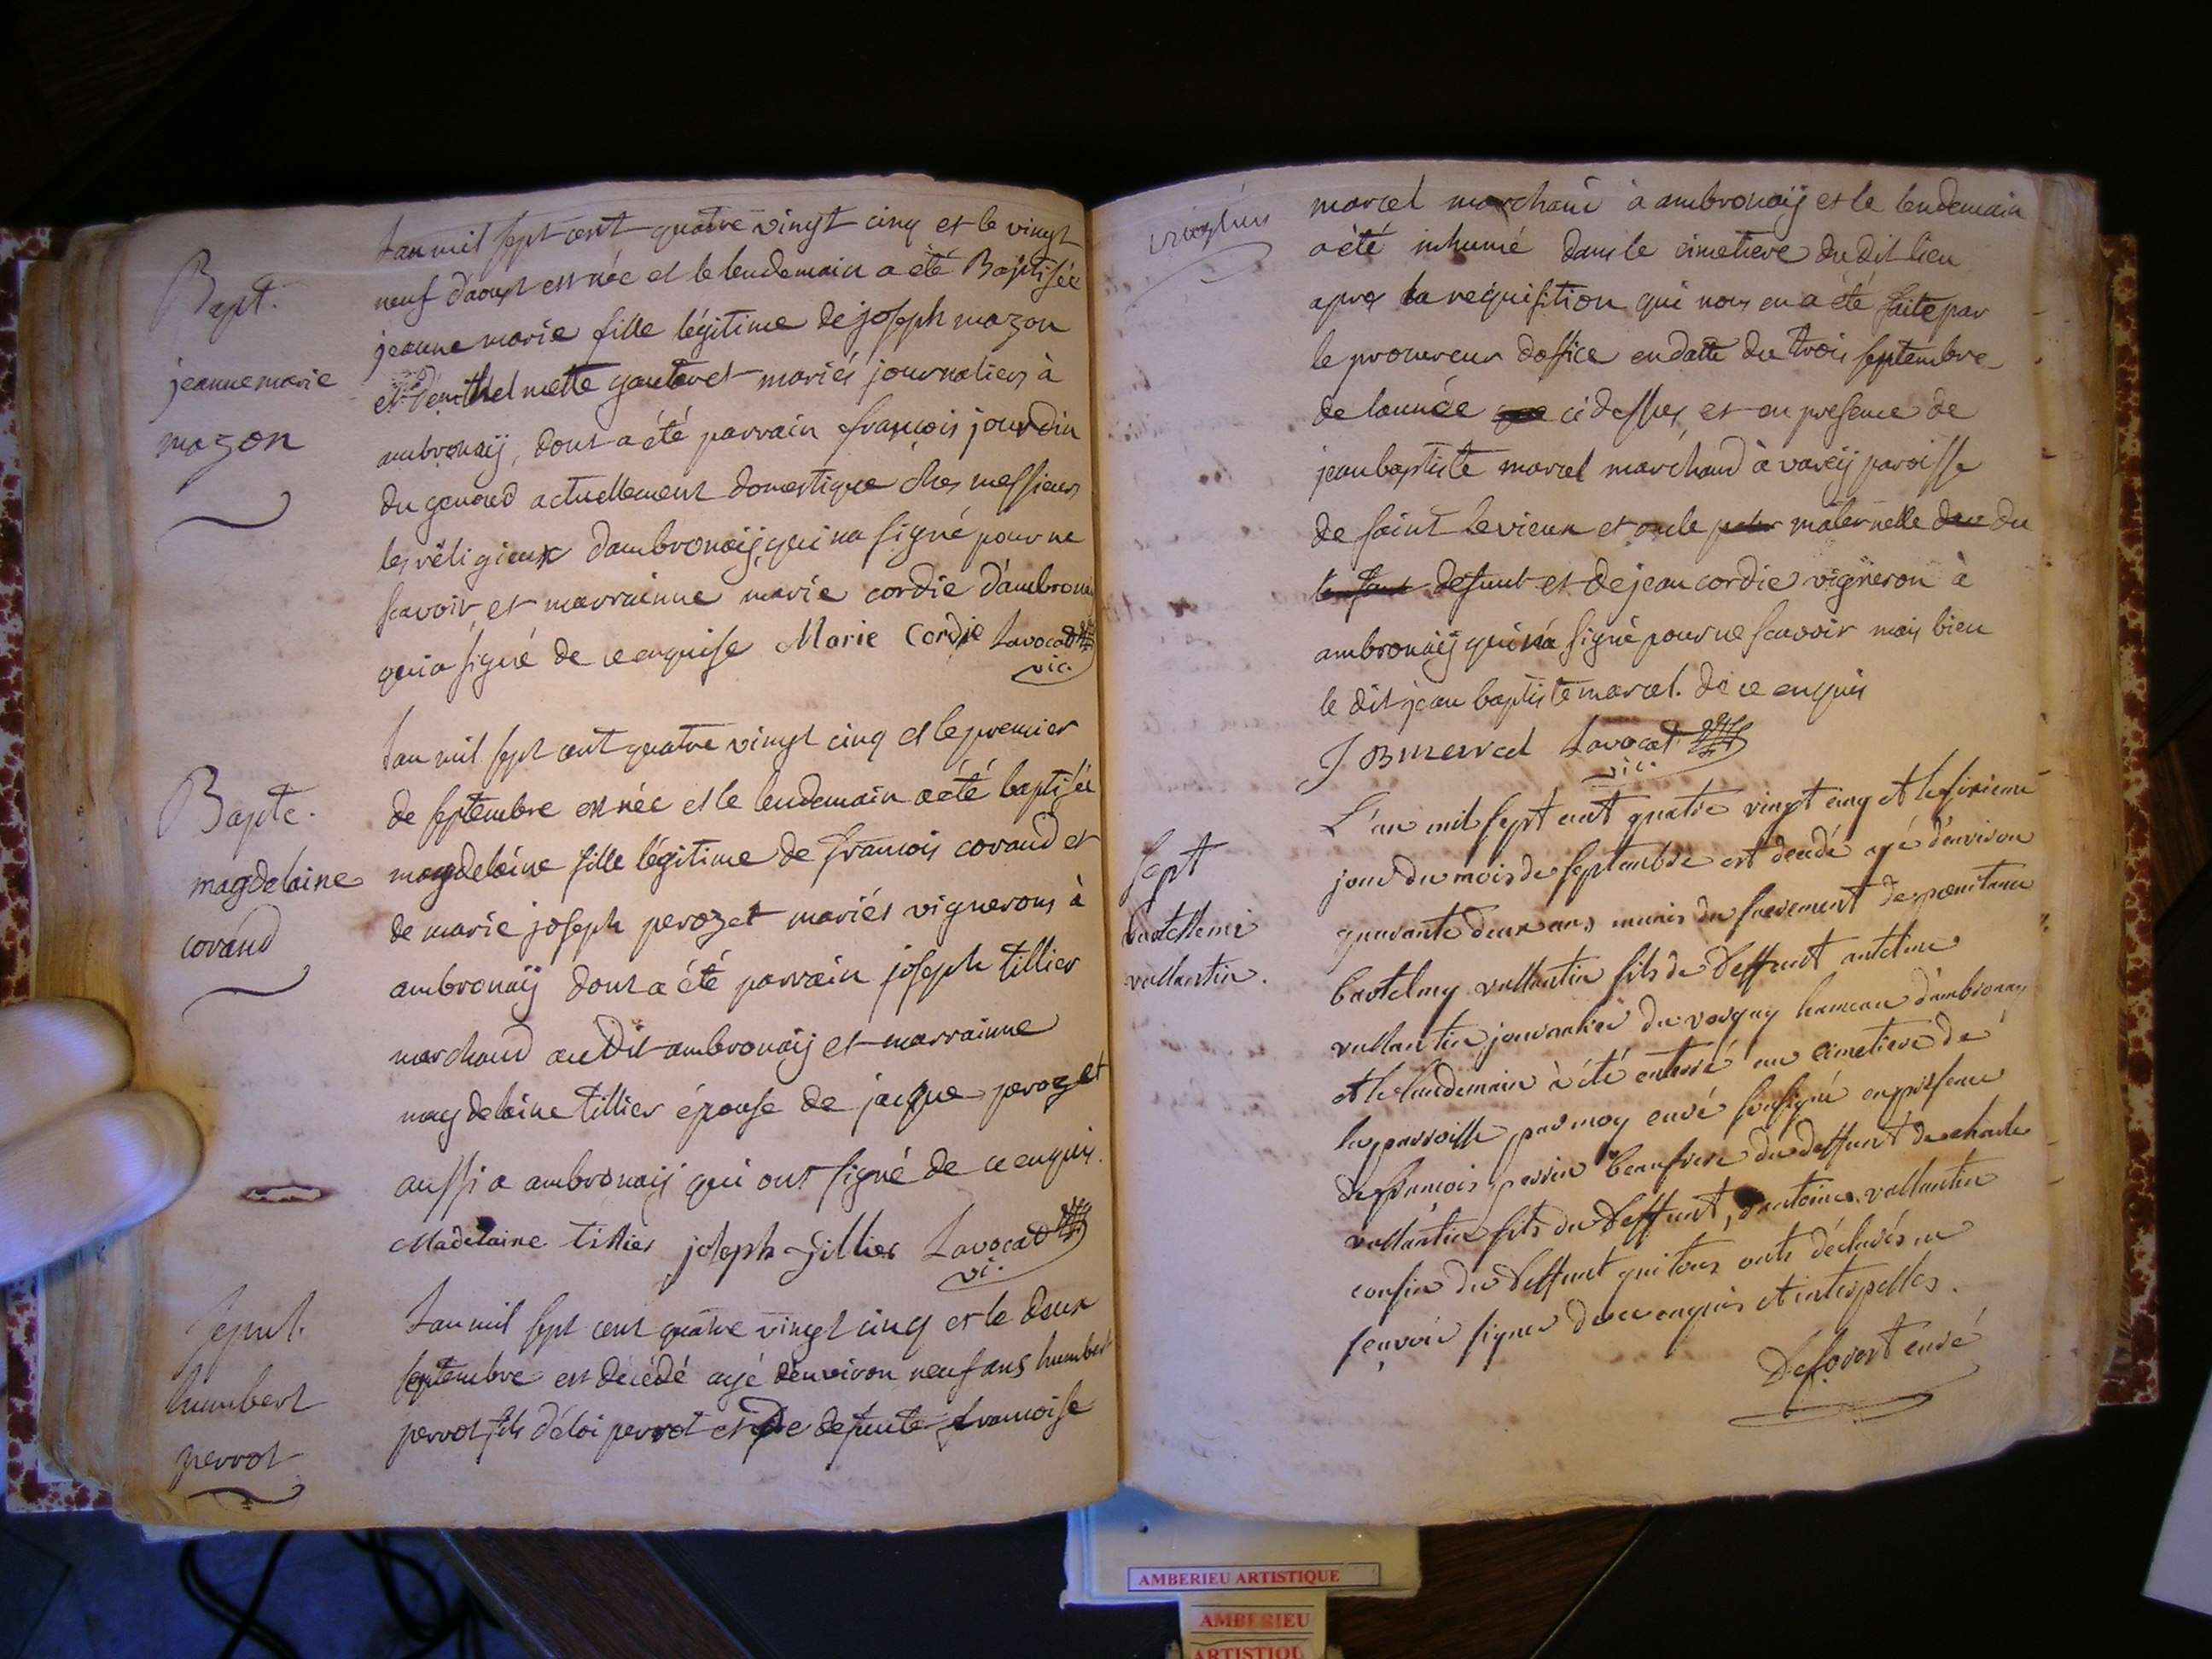 Bapt.
jeanne marie
mazon
Lan mil sept cent quatre vingt cinq et le vingt
neuf d'aoust est née et le lendemain a été Baptisée
jeanne marie fille légitime de joseph mazon
et mariés journaliers à
ambronaÿ, dont a été parrain françois jourdin
du genoud actuellement domestique ches messieurs
les réligieux dambronaÿ, qui na signé pour ne
scavoir, et marrainne marie cordie d'ambronay
qui a signé de ce enquise Marie Cordie Lavocat
vic.
Bapte.
magdelaine
corand
Lan mil sept cent quatre vingt cinq et le premier
de septembre est née et le lendemain a été baptisée
magdelaine fille légitime de francois corand et
de marie joseph perozet mariés vignerons à
ambronaÿ dont a été parrain joseph tillier
marchand audit ambronaÿ et marrainne
magdelaine tillier épouse de jacque perozet
aussi a ambronaÿ qui ont signé de ce enquis.
Madelaine tillier joseph Tillier Lavocat
vi.
Sepul.
humbert
perrot
Lan mil sept cent quatre vingt cinq et le deux
septembre est décédé agé denviron neuf ans humbert
perrot fils d'éloi perrot et de defunte francoise
marcel marchand à ambronaÿ et le lendemain
a été inhumé dans le cimetiere du dit lieu
apres la requisition qui nous en a été faite par
le procureur doffice en datte du trois septembre
de lannée ci dessus, et en presence de
jean baptiste marcel marchand à vareÿ paroisse
de saint levieux et oncle maternelle du
defunt et de jean cordie vigneron à
ambronaÿ qui n'a signé pour ne scavoir mais bien
le dit jean baptiste marcel. de ce enquis
J B marcel Lavocat
vic.
sept
bartellemi
vallantin.
L'an mil sept cent quatre vingt cinq et le sixieme
jour du mois de septembre est decedé agé d'environ
quarante deux ans munis du sacrement de pœnitence
bartelmy vallantin fils de deffunt antelme
vallantin journalier du vorgey hameau d'ambronay
et le landemain à été enterré au cimetiere de
la parroisse par moy curé soussigné en presence
de françois perrin beaufrere du deffunt de charle
vallantin fils du deffunt, d'antoine vallantin
cousin du deffunt qui tous onts déclarés ne
sçavoir signer de ce enquis et interpellés.
curé
AMBERIEU ARTISTIQUE
AMBERIEU
ARTISTIQU